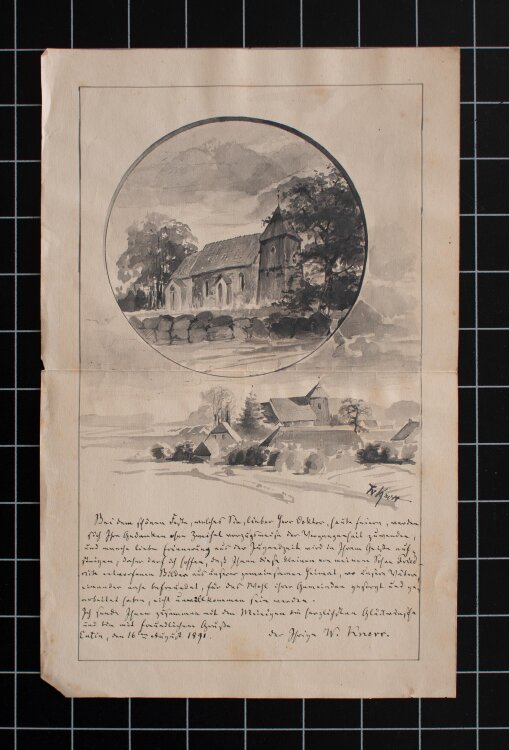 Fr Knorr
Bei dem schönen Feste, welches Sie, lieber Herr Doktor, heute feiern, werden
sich Ihre Gedanken ohne Zweifel vorzugsweise der Vergangenheit zuwenden,
und manche liebe Erinnerung aus der Jugendzeit wird in Ihrem Geiste auf-
steigen; daher darf ich hoffen, daß Ihnen diese kleinen von meinem Sohn Fried
rich entworfenen Bilder aus unserer gemeinsamen Heimat, wo unsere Väter
einander auch befreundet, für das Wohl ihrer Gemeinden gesorgt und ge-
arbeitet haben, nicht unwillkommen sein werden.
Ich sende Ihnen zusammen mit den Meinigen die herzlichsten Glückwünsche
und bin mit freundlichem Gruße
Eutin, den 16ten August 1891. der Ihrige W. Knorr.